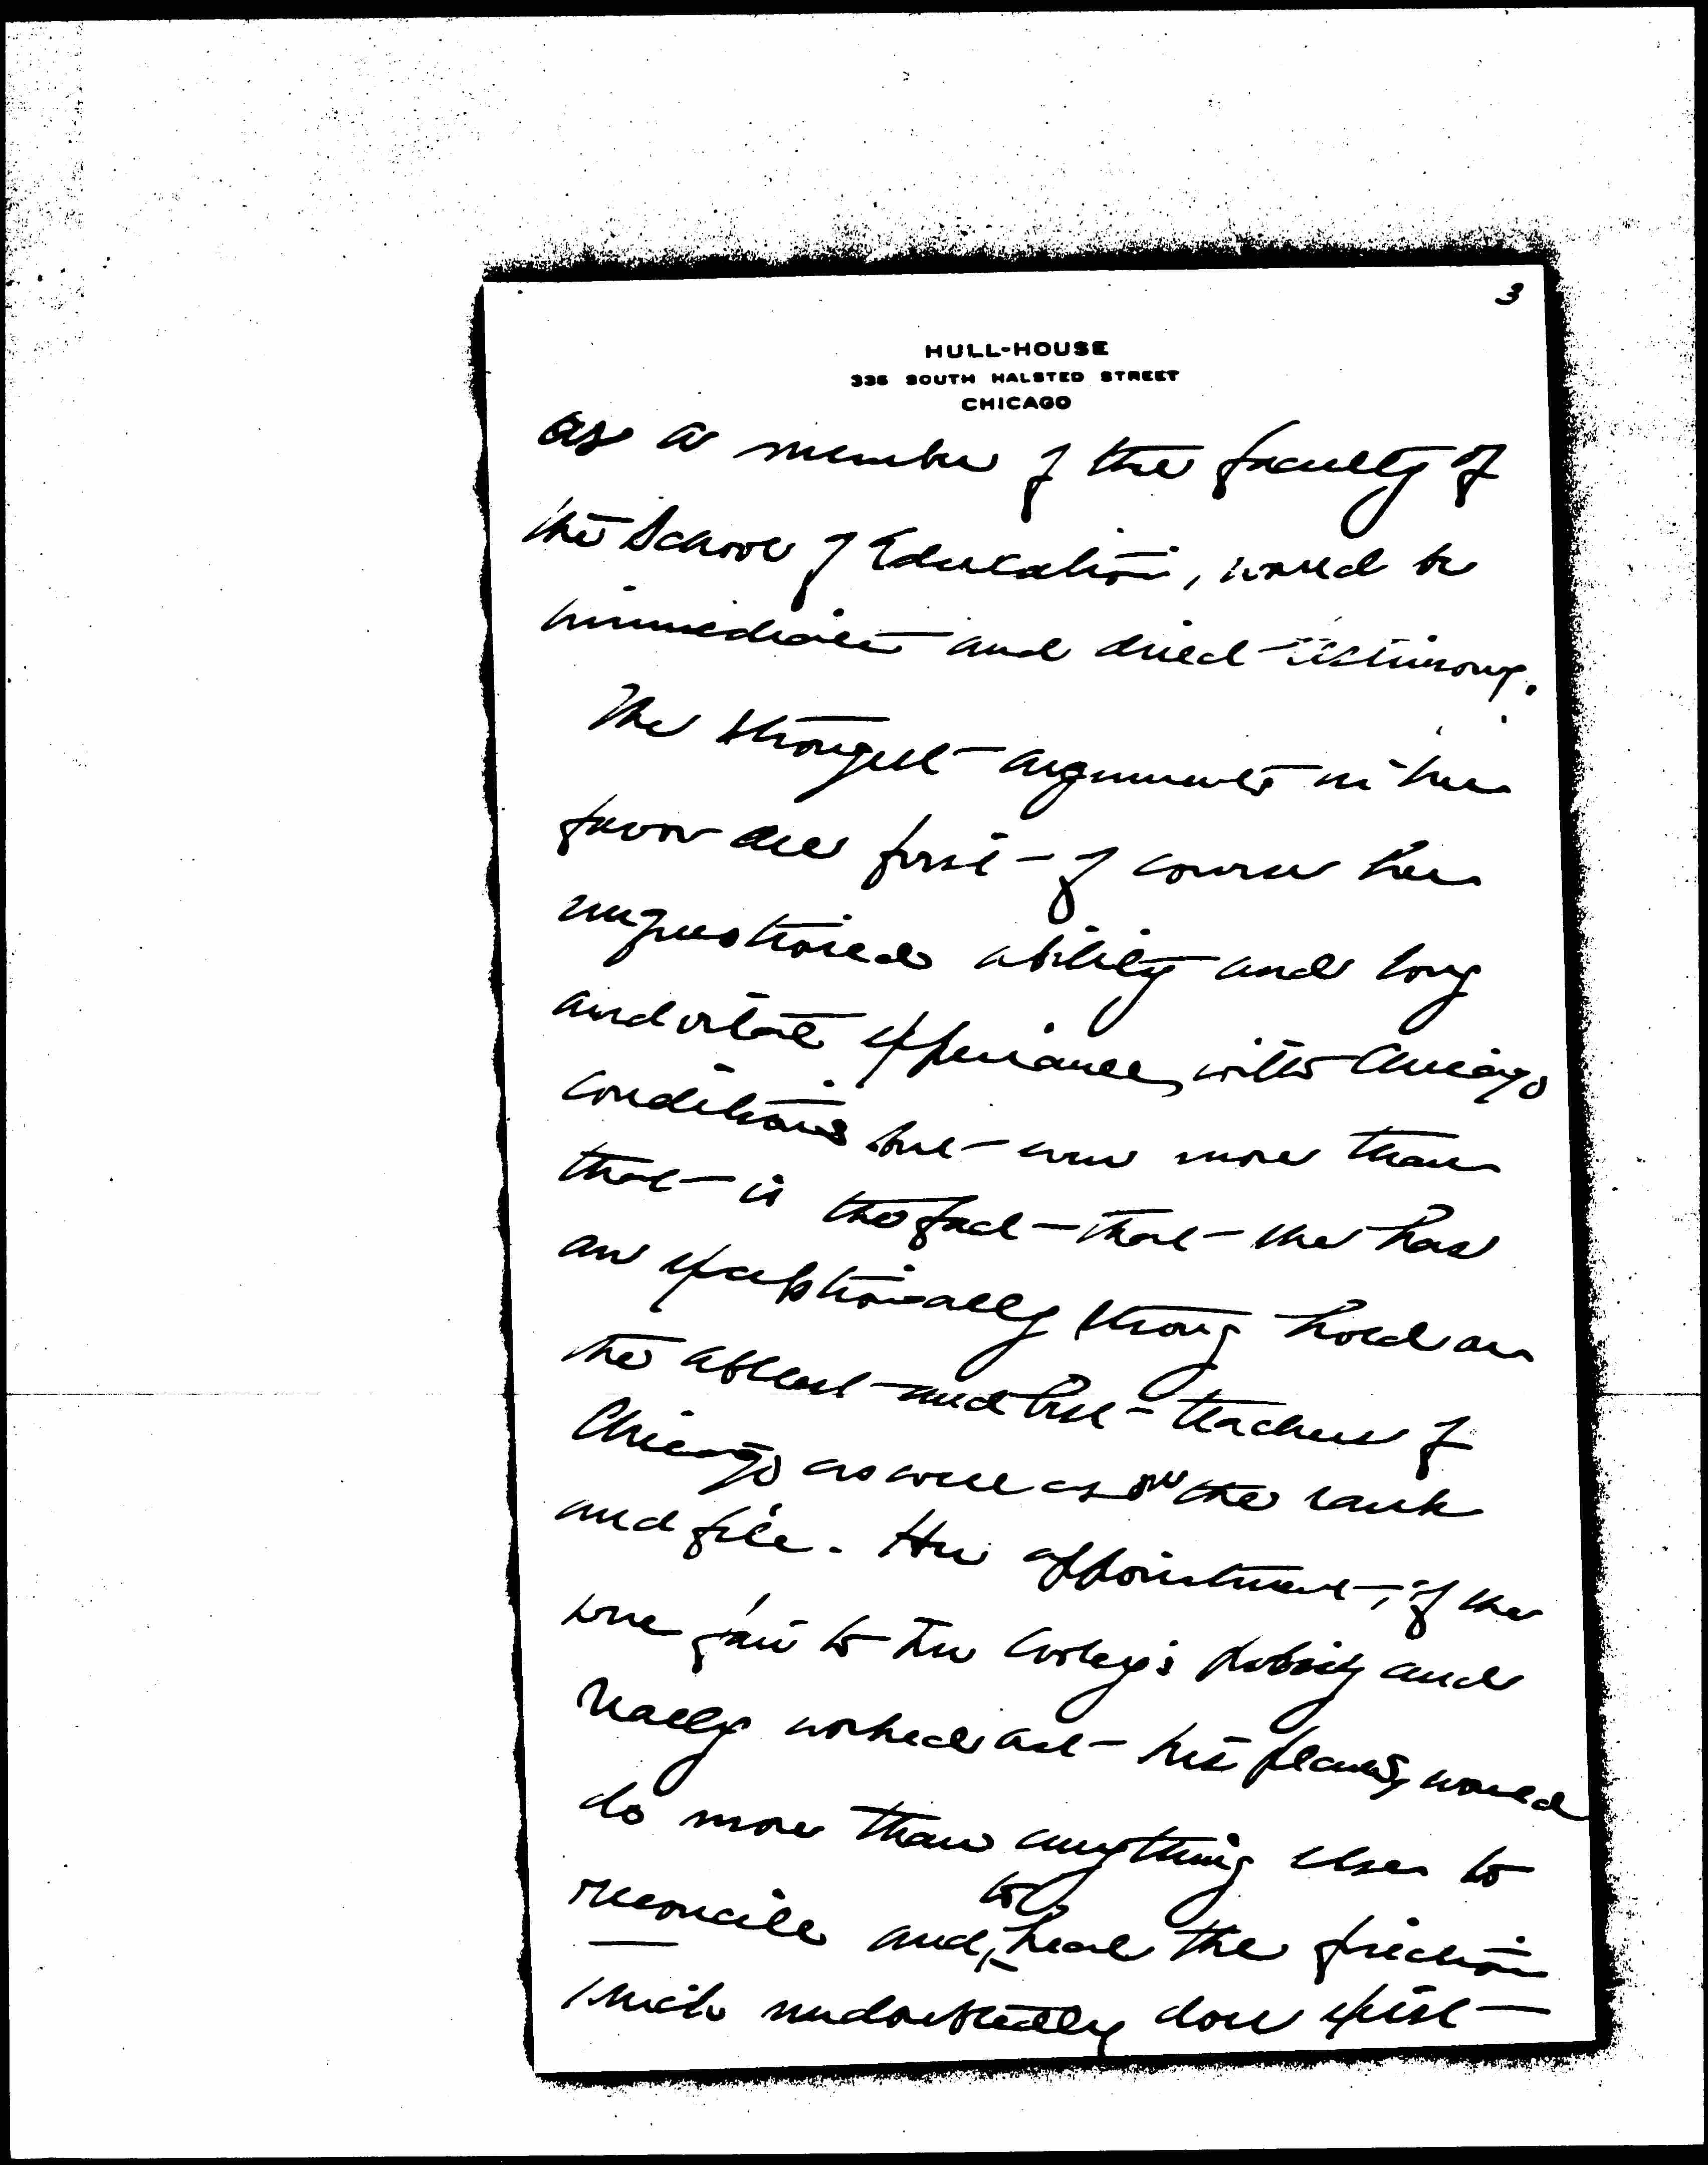 3
HULL-HOUSE
335 SOUTH HALSTED STREET
CHICAGO
as a member of the faculty of
the School of Education, would be
immediate and direct testimony.
The strongest arguments in her
favor are first of course her
unquestioned ability and long
and varied experience, with Chicago
conditions but even more than
that is the fact that she has
an exceptionally strong hold on
the ablest and best teachers of
Chicago as well as on the rank
and file. Her appointment, if she
were fair to Mr Cooley's policy and
really worked out his plans, would
do more than anything else to
reconcile and to heal the friction
which undoubtedly does exist